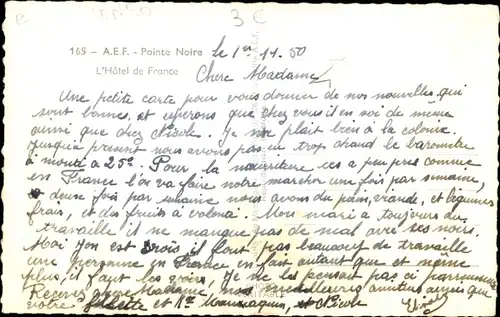 3 €
165 – A.E.F. - Pointe Noire le 1er 11. 50
L'Hôtel de France
Chere Madame
Une petite carte pour vous donner de nos nouvelles qui
sont bonnes, et esperons que chez vous il en soi de même
ainsi que chez Nicole. Je me plait bien à la colonie.
Jusqu'a present nous avons pas eu trop chaud le barometre
a monté a 25°. Pour la nourriture ces a peu pres comme
en France l'on va faire notre marcher une fois par semaine,
deux fois par semaine nous avons du pain, viande, et legumes
frais, et des fruits à volonté. Mon mari a toujours du
travaille il ne manque pas de mal avec ses noirs.
Moi j'en est trois il font pas beaucoup de travaille
une personne en France en fait autant que et même
plus, il faut les crier. Je ne les pensait pas ci
Recevez chere Madame, nos meilleures amities ainsi que
votre et Mr et Nicole